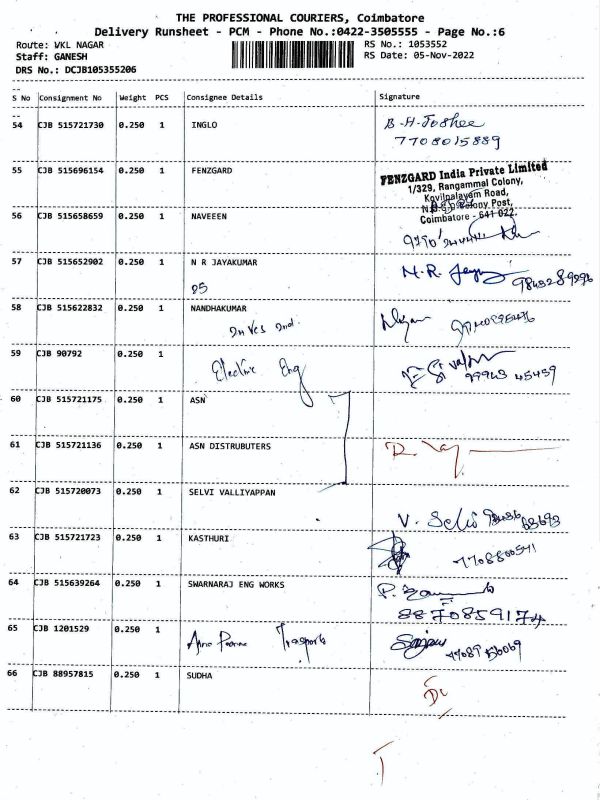 THE PROFESSIONAL COURIERS, Coimbatore
Delivery Runsheet - PCM - Phone No.:0422-3505555 - Page No.:6
Route: VKL NAGAR RS No.: 1053552
Staff: GANESH RS Date: 05-Nov-2022
DRS No.: DCJB105355206
S No Consignment No Weight PCS Consignee Details Signature
54 CJB 515721730 0.250 1 INGLO B.H. Joshee
7708015889
55 CJB 515696154 0.250 1 FENZGARD FENZGARD India Private Limited
1/329, Rangammal Colony,
Kovilpalayam Road,
Colony Post,
Coimbatore - 641 022.
56 CJB 515658659 0.250 1 NAVEEEN
57 CJB 515652902 0.250 1 N R JAYAKUMAR N.R.
58 CJB 515622832 0.250 1 NANDHAKUMAR
59 CJB 90792 0.250 1 Electric Eng
99943 45459
60 CJB 515721175 0.250 1 ASN
61 CJB 515721136 0.250 1 ASN DISTRUBUTERS
62 CJB 515720073 0.250 1 SELVI VALLIYAPPAN V. Selvi
63 CJB 515721723 0.250 1 KASTHURI
64 CJB 515639264 0.250 1 SWARNARAJ ENG WORKS
8870859174
65 CJB 1201529 0.250 1
66 CJB 88957815 0.250 1 SUDHA